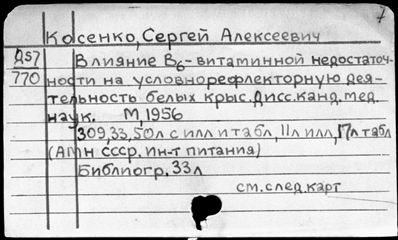 7
Косенко, Сергей Алексеевич
Д57
770
Влияние В6-витаминной недостаточ-
ности на условнорефлекторную дея-
тельность белых крыс. Дисс. канд. мед.
наук. М, 1956
309, 33, 50 л с илл и табл, 11 л илл, 17 л табл
(АМН СССР. Ин-т питания)
Библиогр. 33 л
см. след. карт